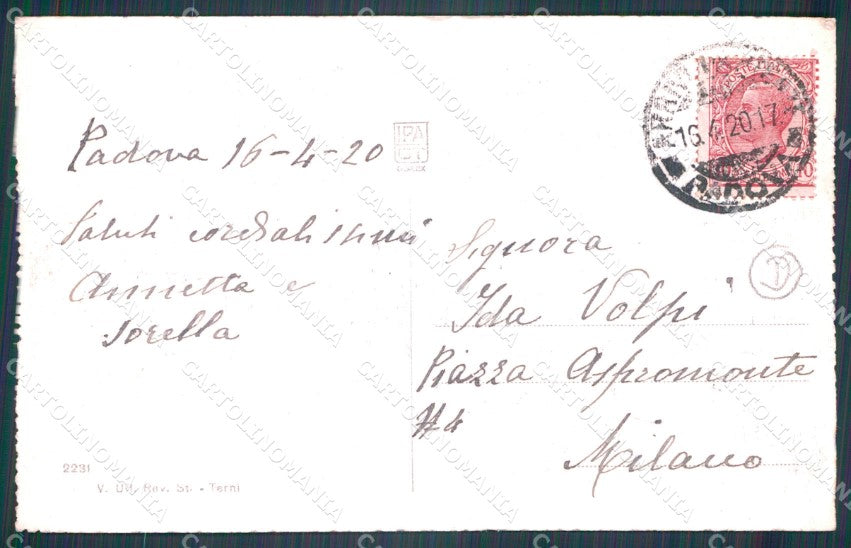 Padova 16-4-20
Saluti cordialissimi
Annetta e
sorella
2231
V. Uff. Rev. St. - Terni
16.4.20.17
PADOVA
10
Signora
Ida Volpi
Piazza Aspromonte
N4
Milano
CARTOLINOMANIA